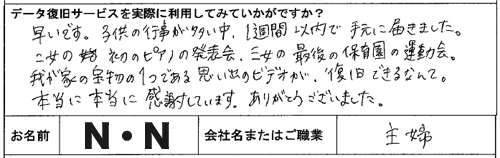 データ復旧サービスを実際に利用してみていかがですか？
早いです。子供の行事が多い中、1週間以内で手元に届きました。
二女の初のピアノの発表会、三女の最後の保育園の運動会。
我が家の宝物の1つである思い出のビデオが、復旧できるなんて。
本当に本当に感謝しています。ありがとうございました。
お名前 N・N 会社名またはご職業 主婦